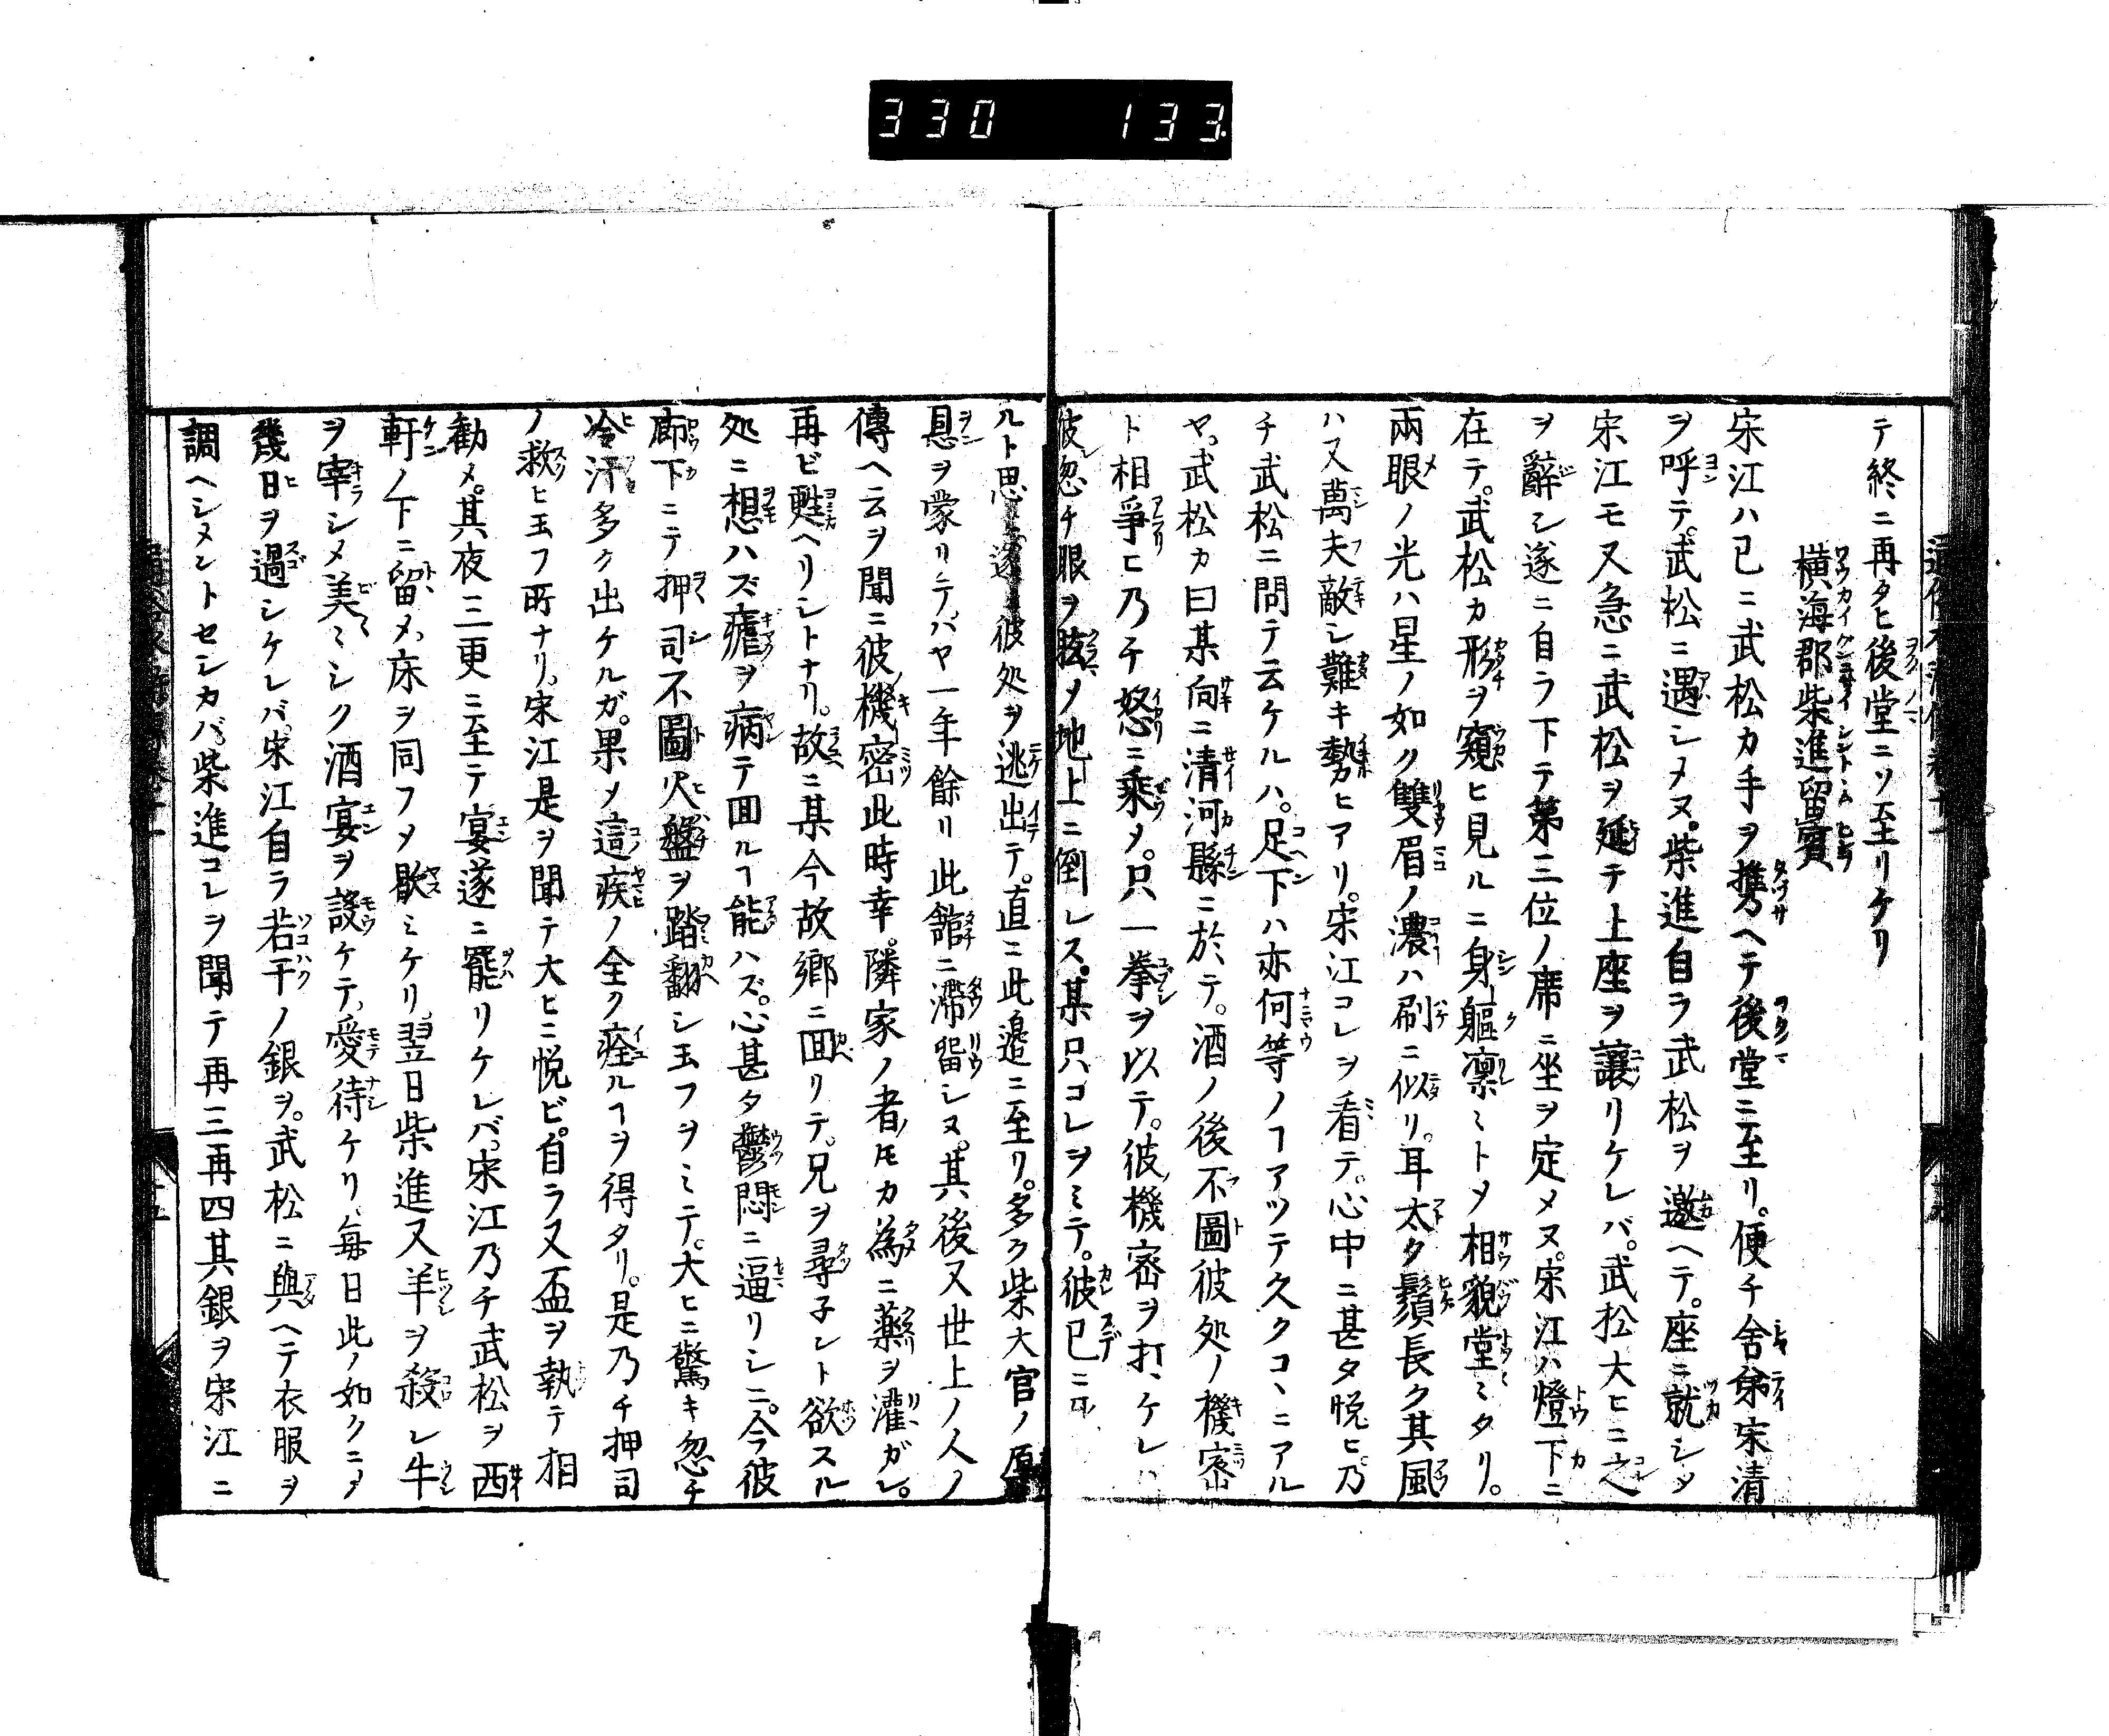 330 133
テ終ニ再タヒ後堂ニソ至リケリ
横海郡柴進留賓
宋江ハ已ニ武松カ手ヲ携ヘテ後堂ニ至リ。便チ舍弟宋清
ヲ呼テ。武松ニ遇シメヌ。柴進自ラ武松ヲ邀ヘテ。座ニ就シメ
宋江モ又急ニ武松ヲ延テ上座ヲ讓リケレバ。武松大ヒニ之
ヲ辭シ遂ニ自ラ下テ第三位ノ席ニ坐ヲ定メヌ。宋江ハ燈下ニ
在テ。武松カ形ヲ窺ヒ見ルニ身軀凛ミトメ相貌堂ミタリ。
兩眼ノ光ハ星ノ如ク雙眉ノ濃ハ刷ニ似リ。耳太タ鬚長ク其風
ハ又萬夫敵シ難キ勢ヒアリ。宋江コレヲ看テ。心中ニ甚タ悦ヒ乃
チ武松ニ問テ云ケルハ。足下ハ亦何等ノヿアツテ久クコヽニアル
ヤ。武松カ曰某向ニ清河縣ニ於テ。酒ノ後不圖彼処ノ機密
ト相爭ヒ乃チ怒ニ乘メ。只一拳ヲ以テ。彼機密ヲ打ケレハ
彼忽チ眼ヲ眩メ地上ニ倒レス。某只コレヲミテ。彼已ニ死
ルト思遂彼処ヲ逃出テ。直ニ此邉ニ至リ。多ク柴大官ノ厚
恩ヲ蒙リテハヤ一年餘リ此舘ニ滯留シヌ。其後又世上ノ人ノ
傳ヘ云ヲ聞ニ彼機密此時幸隣家ノ者ノ𪜈カ為ニ藥ヲ灌ガレ。
再ビ甦ヘリシトナリ。故ニ某今故郷ニ囬リテ。兄ヲ尋子レト欲スル
処ニ想ハズ瘧ヲ病テ囬ルヿ能ハズ。心甚タ鬱悶ニ逼リシニ。今彼
廊下ニテ押司不圖火盤ヲ踏翻シ玉フヲミテ。大ヒニ驚キ忽チ
冷汗多ク出ケルガ。果メ這疾ノ全ク痊ルヿヲ得タリ。是乃チ押司
ノ救ヒ玉フ所ナリ。宋江是ヲ聞テ大ヒニ悦ビ。自ラ又盃ヲ執テ相
勸メ。其夜三更ニ至テ宴遂ニ罷リケレバ。宋江乃チ武松ヲ西
軒ノ下ニ留メ、床ヲ同フメ歇ミケリ。翌日柴進又羊ヲ殺シ牛
ヲ宰シメ美ミシク酒宴ヲ設ケテ、愛待ケリ、毎日此ノ如クニメ
幾日ヲ過シケレバ。宋江自ラ若干ノ銀ヲ。武松ニ與ヘテ衣服ヲ
調ヘシメントセシカバ。柴進コレヲ聞テ再三再四其銀ヲ宋江ニ